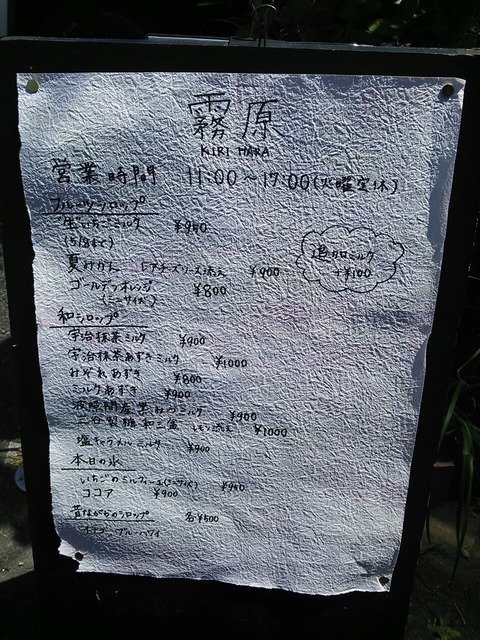 霧原
KIRI HARA
営業時間 11:00~17:00(火曜定休)
フルーツシロップ
生いちごミルク ¥950
(5/8まで)
追加ミルク
+¥100
夏みかん レアチーズソース添え ¥900
ゴールデンオレンジ ¥800
(ミニサイズ)
和シロップ
宇治抹茶ミルク ¥900
宇治抹茶あずきミルク ¥1000
みぞれあずき ¥800
ミルクあずき ¥900
波照間産黒みつミルク ¥900
三谷製糖和三盆 レモン添え ¥1000
塩キャラメルミルク ¥900
本日の氷
いちごのミルフィーユ(ミニサイズ) ¥950
ココア ¥900
昔ながらのシロップ 各¥500
ブルーハワイ